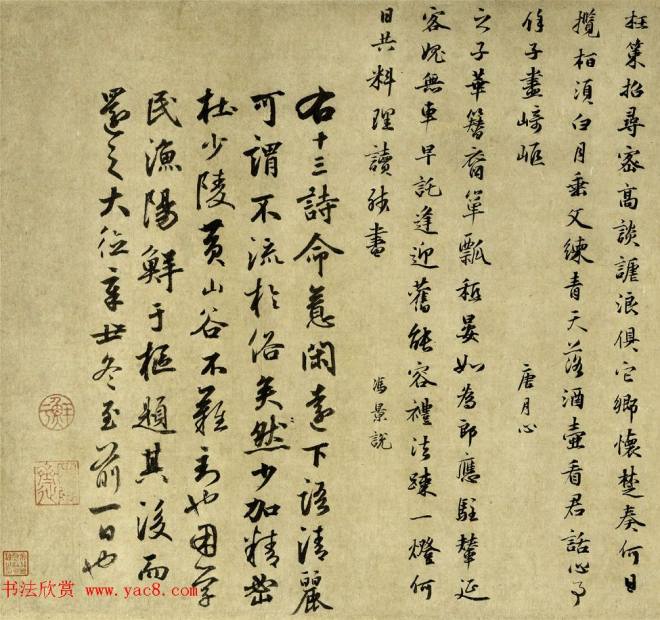 枉策招尋密高談謔浪俱它鄉懷楚奏何日
攬柏須白月垂文練青天落酒壺看君話心事
餘子盡崎嶇
唐月心
之子華簪裔簞瓢穩晏如為郎應駐輦延
客媿無車早託逢迎舊能容禮法疎一燈何
日共料理讀殘書
馮景說
右十三詩命意閑遠下語清麗
可謂不流於俗矣然少加精密
杜少陵黃山谷不難到也困學
民漁陽鮮于樞題其後而
還之大德辛丑冬至前一日也
书法欣赏 www.yac8.com